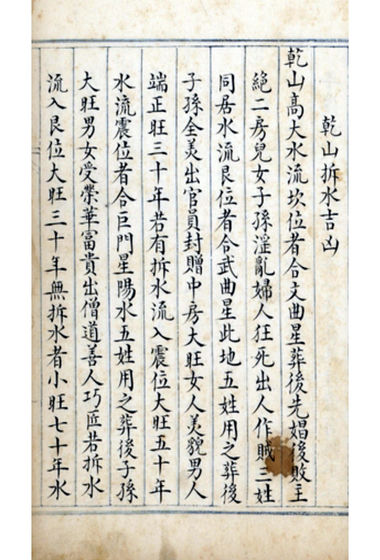 乾山拆水吉凶
乾山高大水流坎位者合文曲星葬後先娼後敗主
絕二房兒女子孫淫亂婦人狂死出人作賊三姓
同居水流艮位者合武曲星此地五姓用之葬後
子孫全美出官員封贈中房大旺女人美貌男人
端正旺三十年若有拆水流入震位大旺五十年
水流震位者合巨門星陽水五姓用之葬後子孫
大旺男女受榮華富貴出僧道善人巧匠若拆水
流入艮位大旺三十年無拆水者小旺七十年水